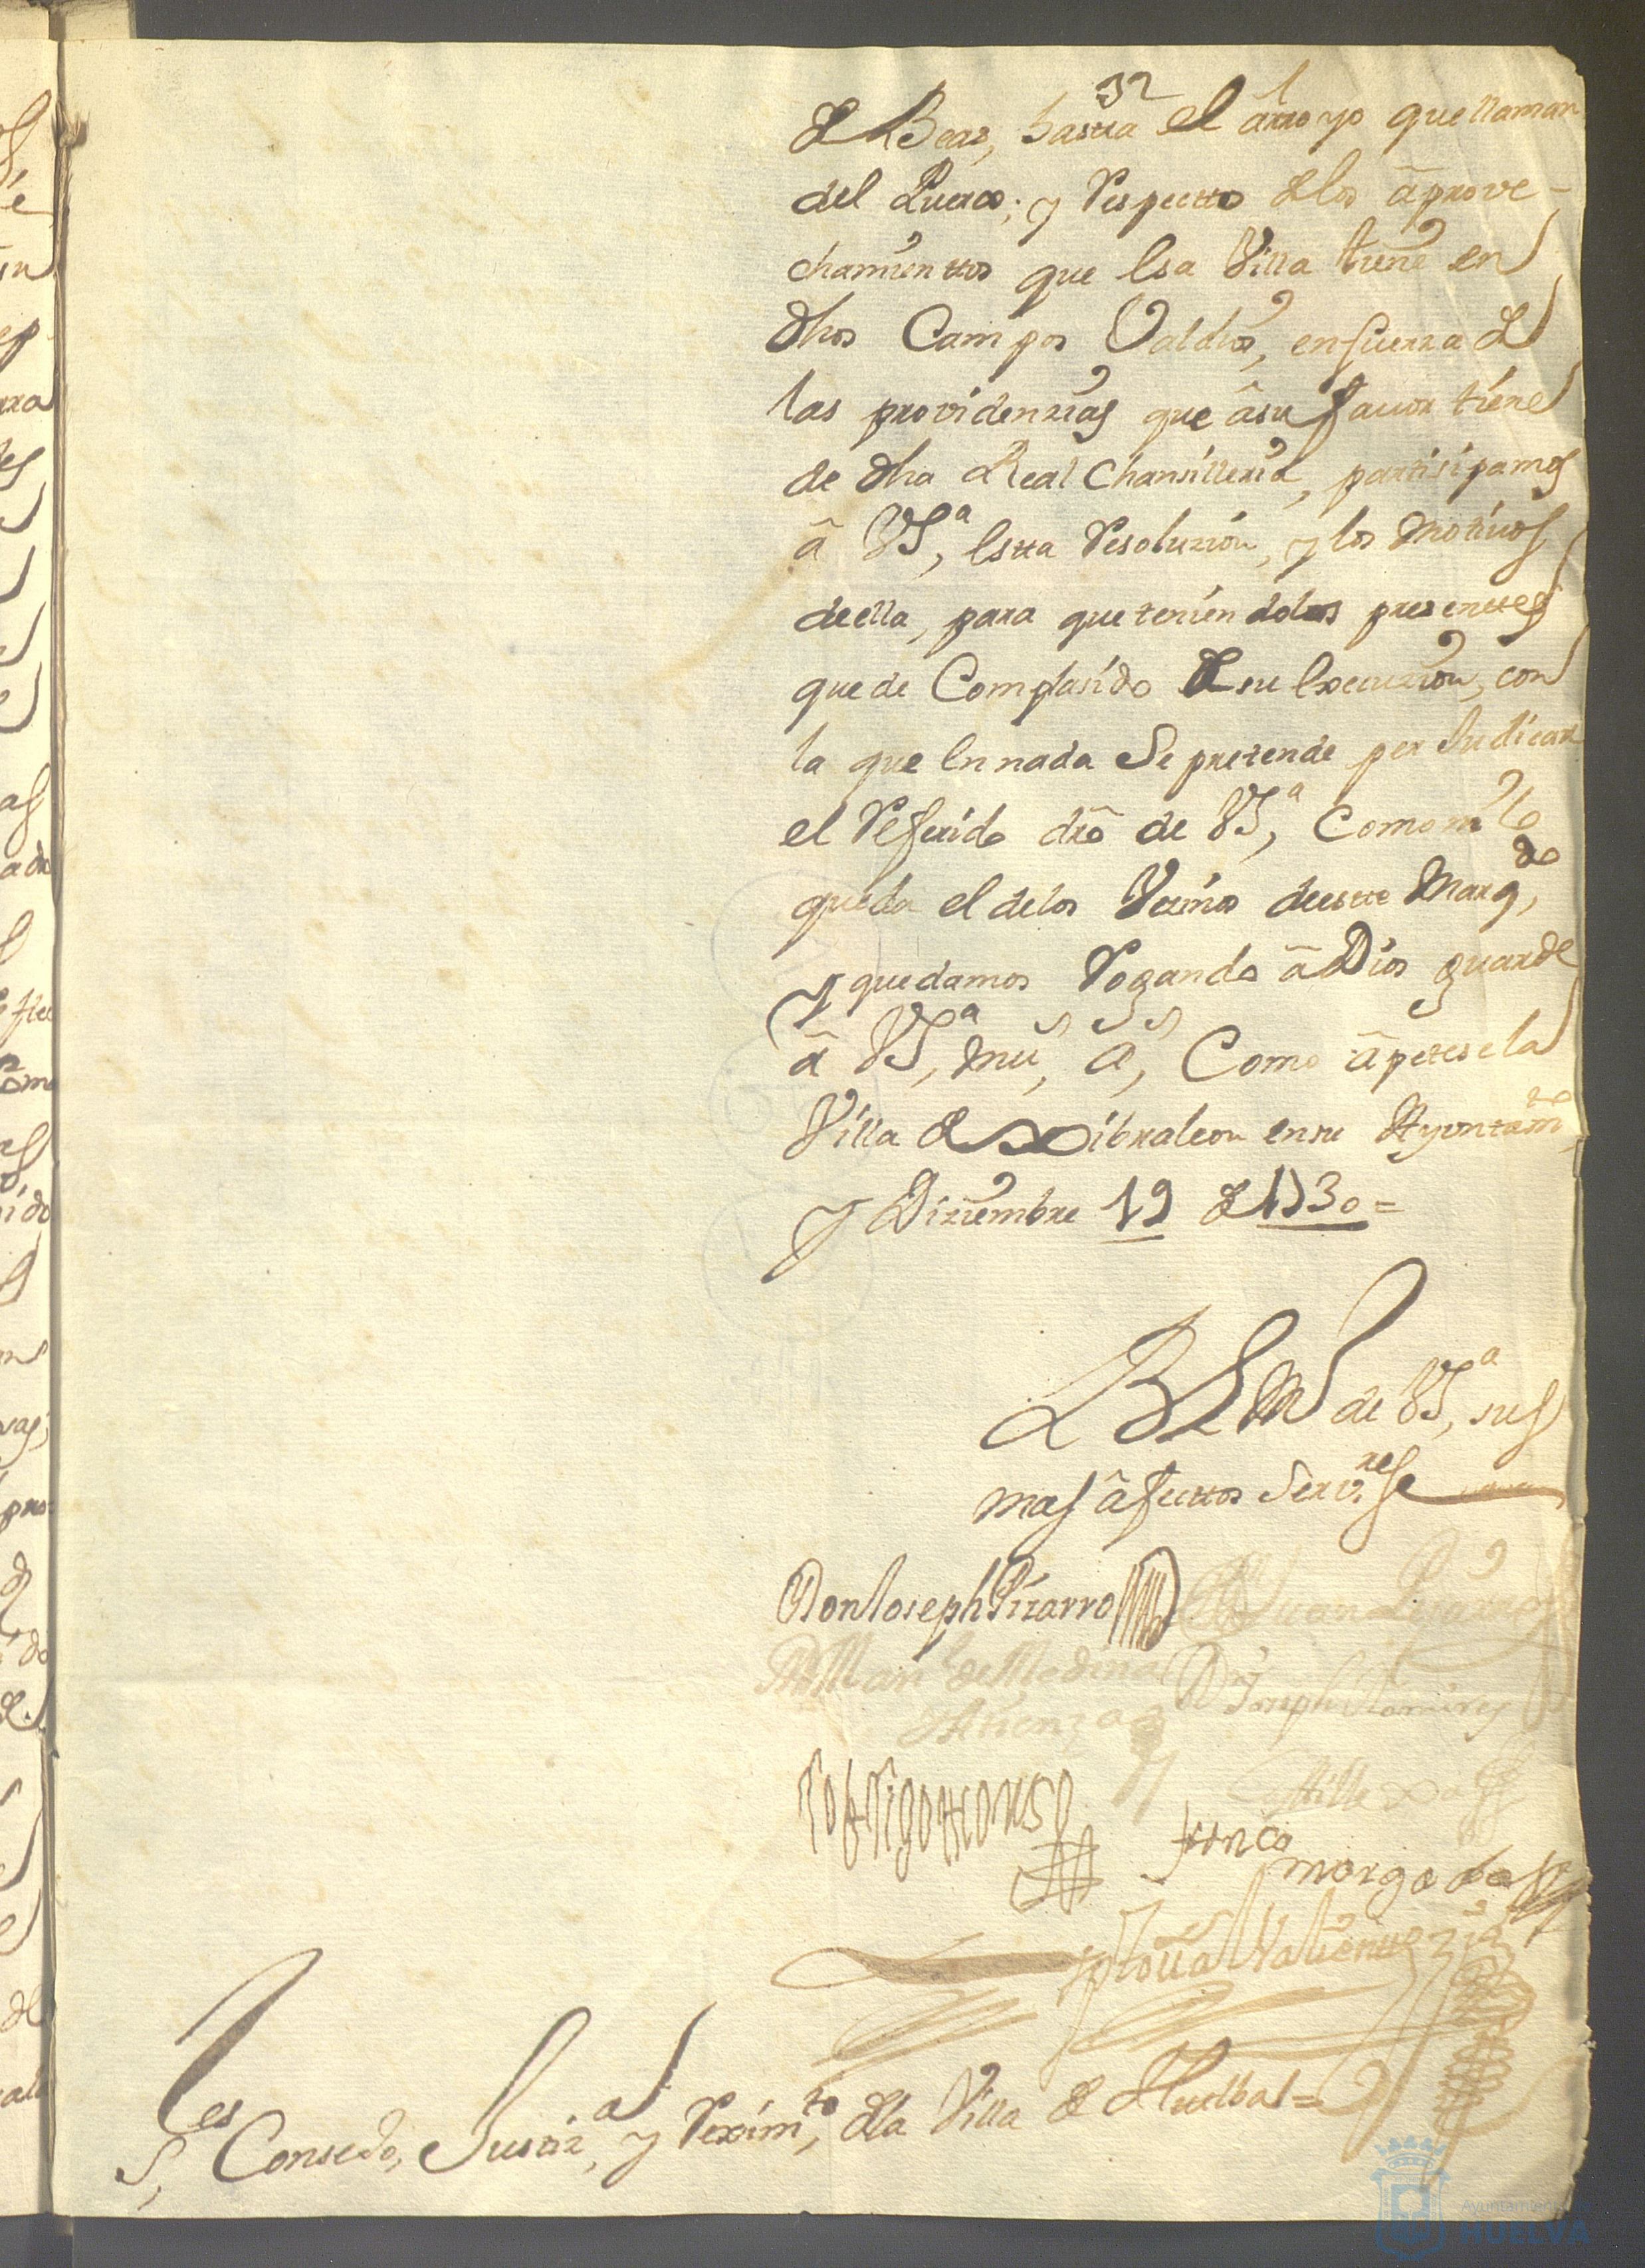 32
de Beas, hasta el ârroyo que llaman
del Puerco; y respectto de los âprove-
chamienttos que esa Villa tiene en
dhos Campos Valdios, en fuerza de
las providenzias que âsu favor tiene
de dha Real Chansilleria, partisipamos
â VSª, estta resoluzion, y los motivos
de ella, para que teniendolos presenttes
quede Complasido de su execuzion, con
la que en nada se pretende perjudicar
el referido dro de VSª, Como ni lo
queda el de los Vezinos de estte Marqdo,
y quedamos rogando â Dios guarde
â VSª, mus, as, Como âpetese la
Villa de Xibraleon en su Ayuntamto
y Diziembre 19 de 1730=
B L M de VSª, sus
mas âfecttos Servres
Don Joseph Pizarro Dn Juan
Dn Manl de Medina Dn Joseph Ramires
Atienza
Rodrigo Alonso
franco
morgado
Xptoual Valiente
Sres Consejo, Justiza, y reximto, de la Villa de Huelba=
Ayuntamiento de
HUELVA